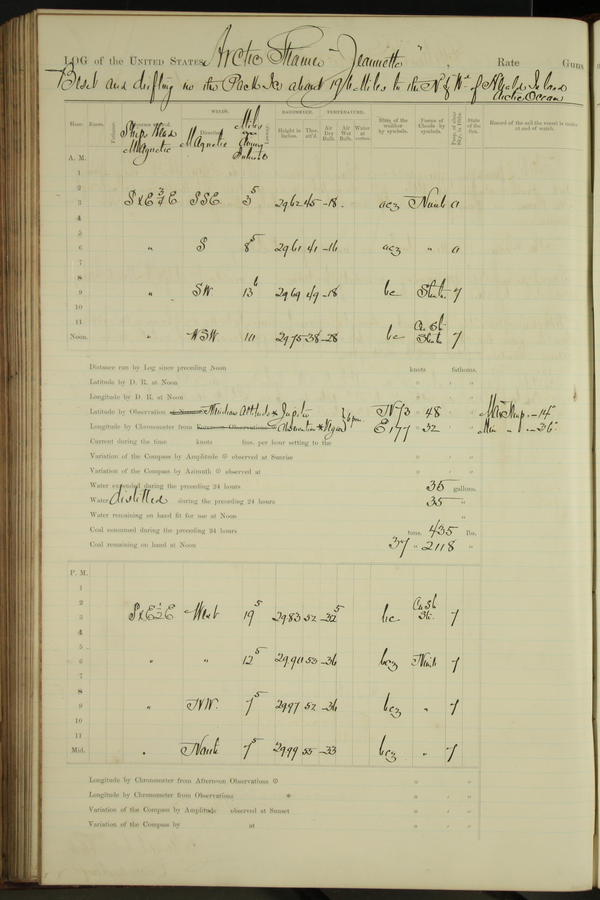 LOG of the UNITED STATES Arctic Steamer "Jeannette", Rate Guns
Beset and drifting in the Pack Ice about 196 Miles to the Nd & Wd of Herald Island
Arctic Ocean
Hour. Knots. Fathoms. Ship's Head Magnetic WINDS. Direction Magnetic Miles per hour Leeway. BAROMETER. Height in Inches. Ther. att'd. TEMPERATURE. Air Dry Bulb. Air Wet Bulb. Water at surface. State of the weather by symbols. Forms of Clouds by symbols. State of the Sea. Record of the sail the vessel is under at end of watch.
A. M.
1
2
3 SxE ¾ E SSE 3 5 29 62 45 -18
4
5
6 " S 8 5 29 61 41 -16 "
7
8
9 " SW 13 6 29 69 49 -18 bc
10
11
Noon. " WSW 10 29 75 38 -28 bc
Distance run by Log since preceding Noon knots fathoms.
Latitude by D. R. at Noon ° ' "
Longitude by D. R. at Noon ° ' "
Latitude by Observation Meridian Altitude * Jupiter 6 pm. N 73 48
Longitude by Chronometer from Forenoon Observations Observation * E 177 32
Current during the time knots fms. per hour setting to the
Variation of the Compass by Amplitude ☉ observed at Sunrise
Variation of the Compass by Azimuth ☉ observed at
Water expended during the preceding 24 hours 35 gallons.
Water distilled during the preceding 24 hours 35 "
Water remaining on hand fit for use at Noon "
Coal consumed during the preceding 24 hours tons, 435 lbs.
Coal remaining on hand at Noon 37 " 2118 "
P. M.
1
2
3 SxE ½ E West 19 5 29 83 52 -32 5 bc
4
5
6 " " 12 5 29 90 53 -36 bcz
7
8
9 " NW. 7 5 29 97 52 -36 bcz "
10
11
Mid. " 7 5 29 99 55 -33 bcz "
Longitude by Chronometer from Afternoon Observations ☉ ° ' "
Longitude by Chronometer from Observations * ° ' "
Variation of the Compass by Amplitude observed at Sunset ° ' "
Variation of the Compass by at ° ' "